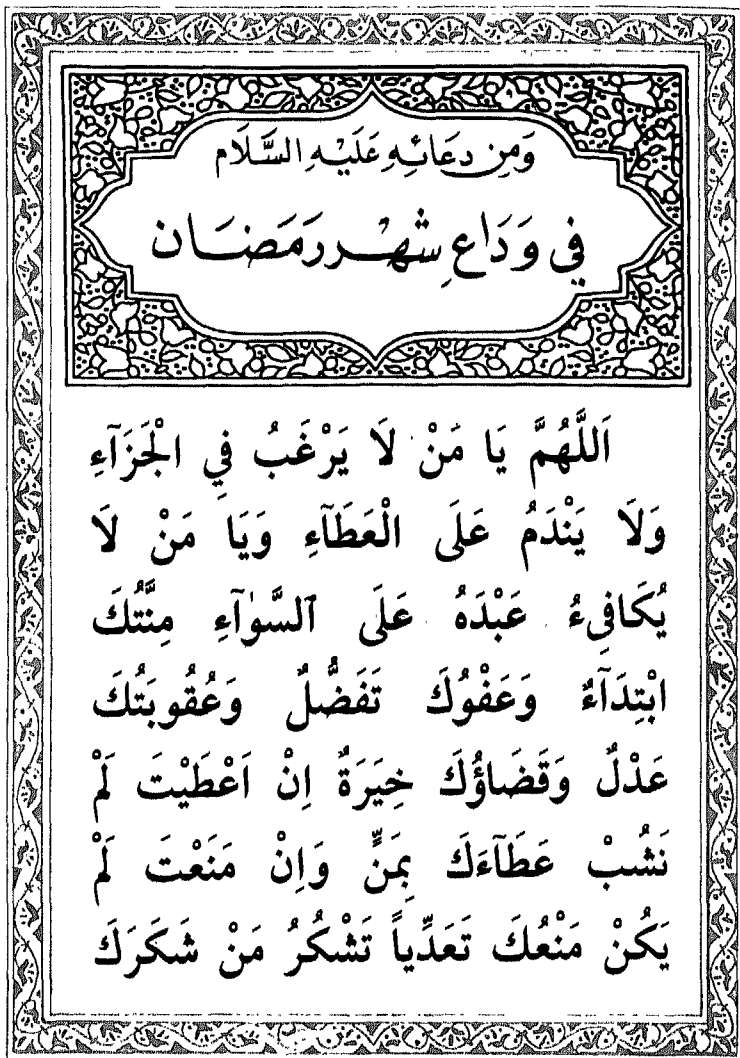 وَمِن دُعَائِهِ عَلَيْهِ السَّلَام
فِي وَدَاعِ شَهْرِ رَمَضَان
اَللَّهُمَّ يَا مَنْ لَا يَرْغَبُ فِي الْجَزَآءِ
وَلَا يَنْدَمُ عَلَى الْعَطَآءِ وَيَا مَنْ لَا
يُكَافِىءُ عَبْدَهُ عَلَى ٱلسَّوٰآءِ مِنَّتُكَ
ابْتِدَآءٌ وَعَفْوُكَ تَفَضُّلٌ وَعُقُوبَتُكَ
عَدْلٌ وَقَضَاؤُكَ خِيَرَةٌ اِنْ اَعْطَيْتَ لَمْ
نَشُبْ عَطَآءَكَ بِمَنٍّ وَاِنْ مَنَعْتَ لَمْ
يَكُنْ مَنْعُكَ تَعَدِّياً تَشْكُرُ مَنْ شَكَرَكَ